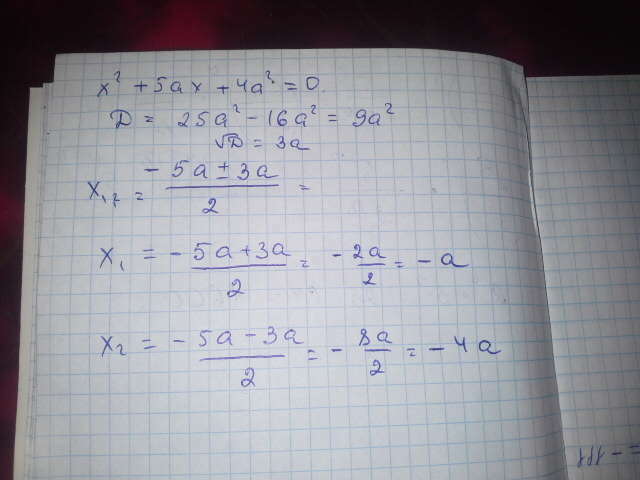 x² + 5ax + 4a² = 0.
D = 25a² - 16a² = 9a²
√D = 3a
x₁,₂ = (-5a ± 3a)/2 =
x₁ = (-5a + 3a)/2 = -2a/2 = -a
x₂ = (-5a - 3a)/2 = -8a/2 = -4a